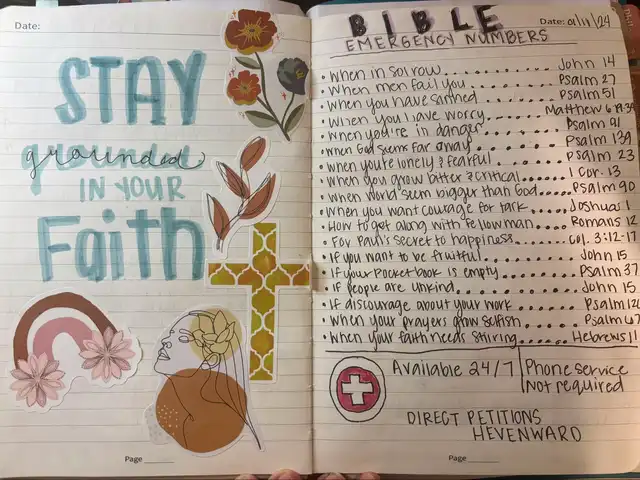 Date:
STAY
grounded
IN YOUR
Faith
Page
BIBLE
Date: 01/11/24
EMERGENCY NUMBERS
• When in sorrow........... John 14
• When men fail you.......... Psalm 27
• When you have sinned........ Psalm 51
• When you have worry........ Matthew 6:19-34
• When you're in danger........ Psalm 91
• When God seems far away....... Psalm 139
• When you're lonely & fearful...... Psalm 23
• When you grow bitter & critical..... 1 Cor. 13
• When world seem bigger than God..... Psalm 90
• When you want courage for task...... Joshua 1
• How to get along with fellowman..... Romans 12
• For Paul's secret to happiness...... Col. 3:12-17
• If you want to be fruitful....... John 15
• If your pocket book is empty...... Psalm 37
• If people are unkind......... John 15
• If discourage about your work..... Psalm
• When your prayers grow selfish..... Psalm 67
• When your faith needs stiring..... Hebrews 11
Available 24/7
Phone service
Not required
DIRECT PETITIONS
HEVENWARD
Page